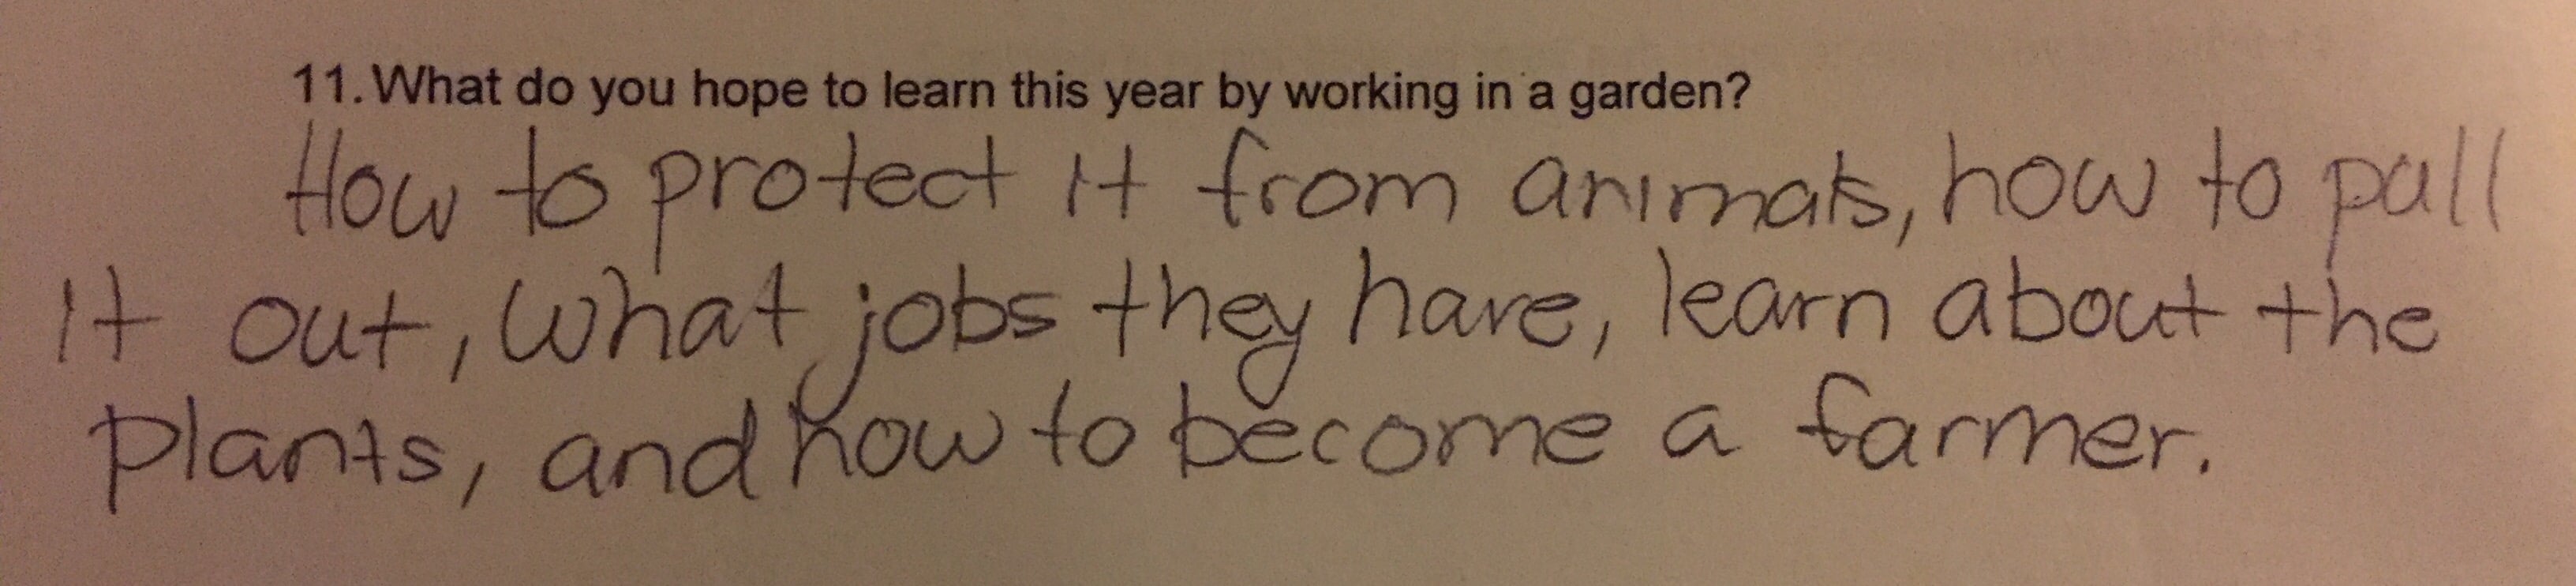 11. What do you hope to learn this year by working in a garden?
How to protect it from animals, how to pull
it out, what jobs they have, learn about the
plants, and how to become a farmer.